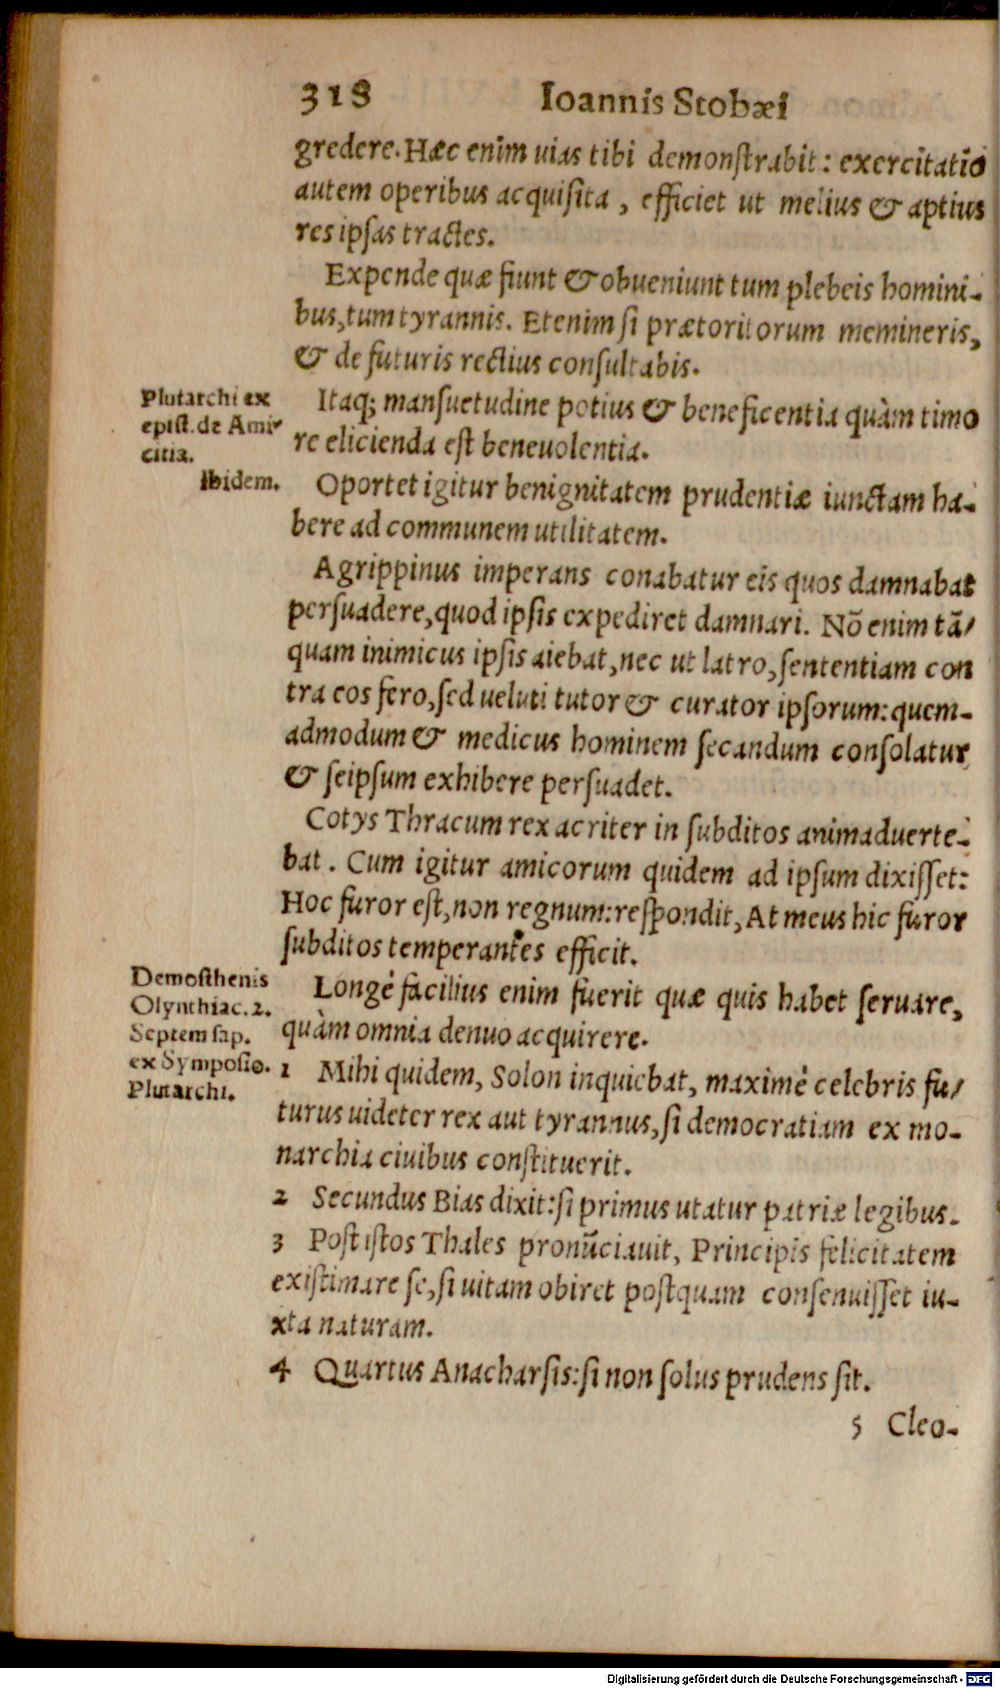 318 Ioannis Stobæi
gredere. Hæc enim uias tibi demonstrabit: exercitatio
autem operibus acquisita, efficiet ut melius & aptius
res ipsas tractes.
Expende quæ fiunt & obueniunt tum plebeis homini-
bus, tum tyrannis. Etenim si prætoritorum memineris,
& de futuris rectius consultabis.
Plutarchi ex
epist. de Ami-
citia.
Itaq; mansuetudine potius & beneficentia quàm timo
re elicienda est beneuolentia.
Ibidem.
Oportet igitur benignitatem prudentiæ iunctam ha-
bere ad communem utilitatem.
Agrippinus imperans conabatur eis quos damnabat
persuadere, quod ipsis expediret damnari. Nõ enim tã/
quam inimicus ipsis aiebat, nec ut latro, sententiam con
tra eos fero, sed ueluti tutor & curator ipsorum: quem-
admodum & medicus hominem secandum consolatur
& seipsum exhibere persuadet.
Cotys Thracum rex acriter in subditos animaduerte-
bat. Cum igitur amicorum quidem ad ipsum dixisset:
Hoc furor est, non regnum: respondit, At meus hic furor
subditos temperantes efficit.
Demosthenis
Olynthiac. 2.
Longè facilius enim fuerit quæ quis habet seruare,
quàm omnia denuo acquirere.
Septem sap.
ex Symposio.
Plutarchi.
1 Mihi quidem, Solon inquiebat, maximè celebris fu/
turus uideter rex aut tyrannus, si democratiam ex mo-
narchia ciuibus constituerit.
2 Secundus Bias dixit: si primus utatur patriæ legibus.
3 Post istos Thales pronũciauit, Principis felicitatem
existimare se, si uitam obiret postquam consenuisset iu-
xta naturam.
4 Quartus Anacharsis: si non solus prudens sit.
5 Cleo-
Digitalisierung gefördert durch die Deutsche Forschungsgemeinschaft - DFG